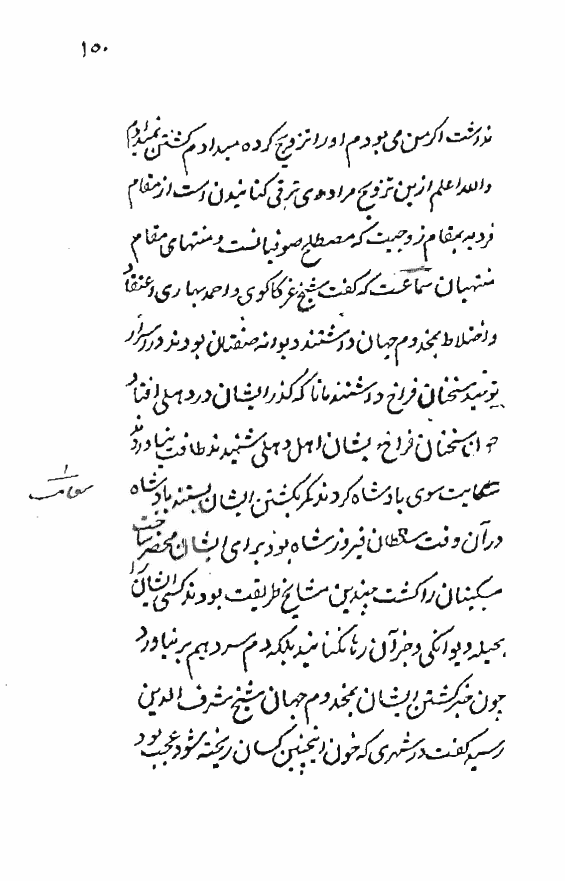 ۱۵۰
نداشت اگر من می بودم او را تزویج کرده میدادم کشتن نمیدادم
والله اعلم ازین تزویج مراد وی ترقی کنانیدن است از مقام
فردیه بمقام زوجیت که مصطلح صوفیانست و منتهای مقام
منتهیان سماعست که گفت شیخ عز کاکوی و احمد بهاری اعتقاد
و اختلاط بمخدوم جهان داشتند دیوانه صفتان بودند در اسرار
توحید سخنان فراخ داشتند مانا که گذر ایشان در دهلی افتاد
چون سخنان فراخ ایشان اهل دهلی شنیدند طاقت نیاوردند
شکایت سوی بادشاه کردند کمر بکشتن ایشان بستند بادشاه
در آن وقت سلطان فیروز شاه بود برای ایشان محضر ساخت
مسکینان را کشت چندین مشایخ طریقت بودند کسی ایشان را
بحیله دیوانگی و جز آن رها نکنانید بلکه دم سرد هم بر نیاورد
چون خبر کشتن ایشان بمخدوم جهان شیخ شرف الدین
رسید گفت در شهری که خون اینچنین کسان ریخته شود عجب بود